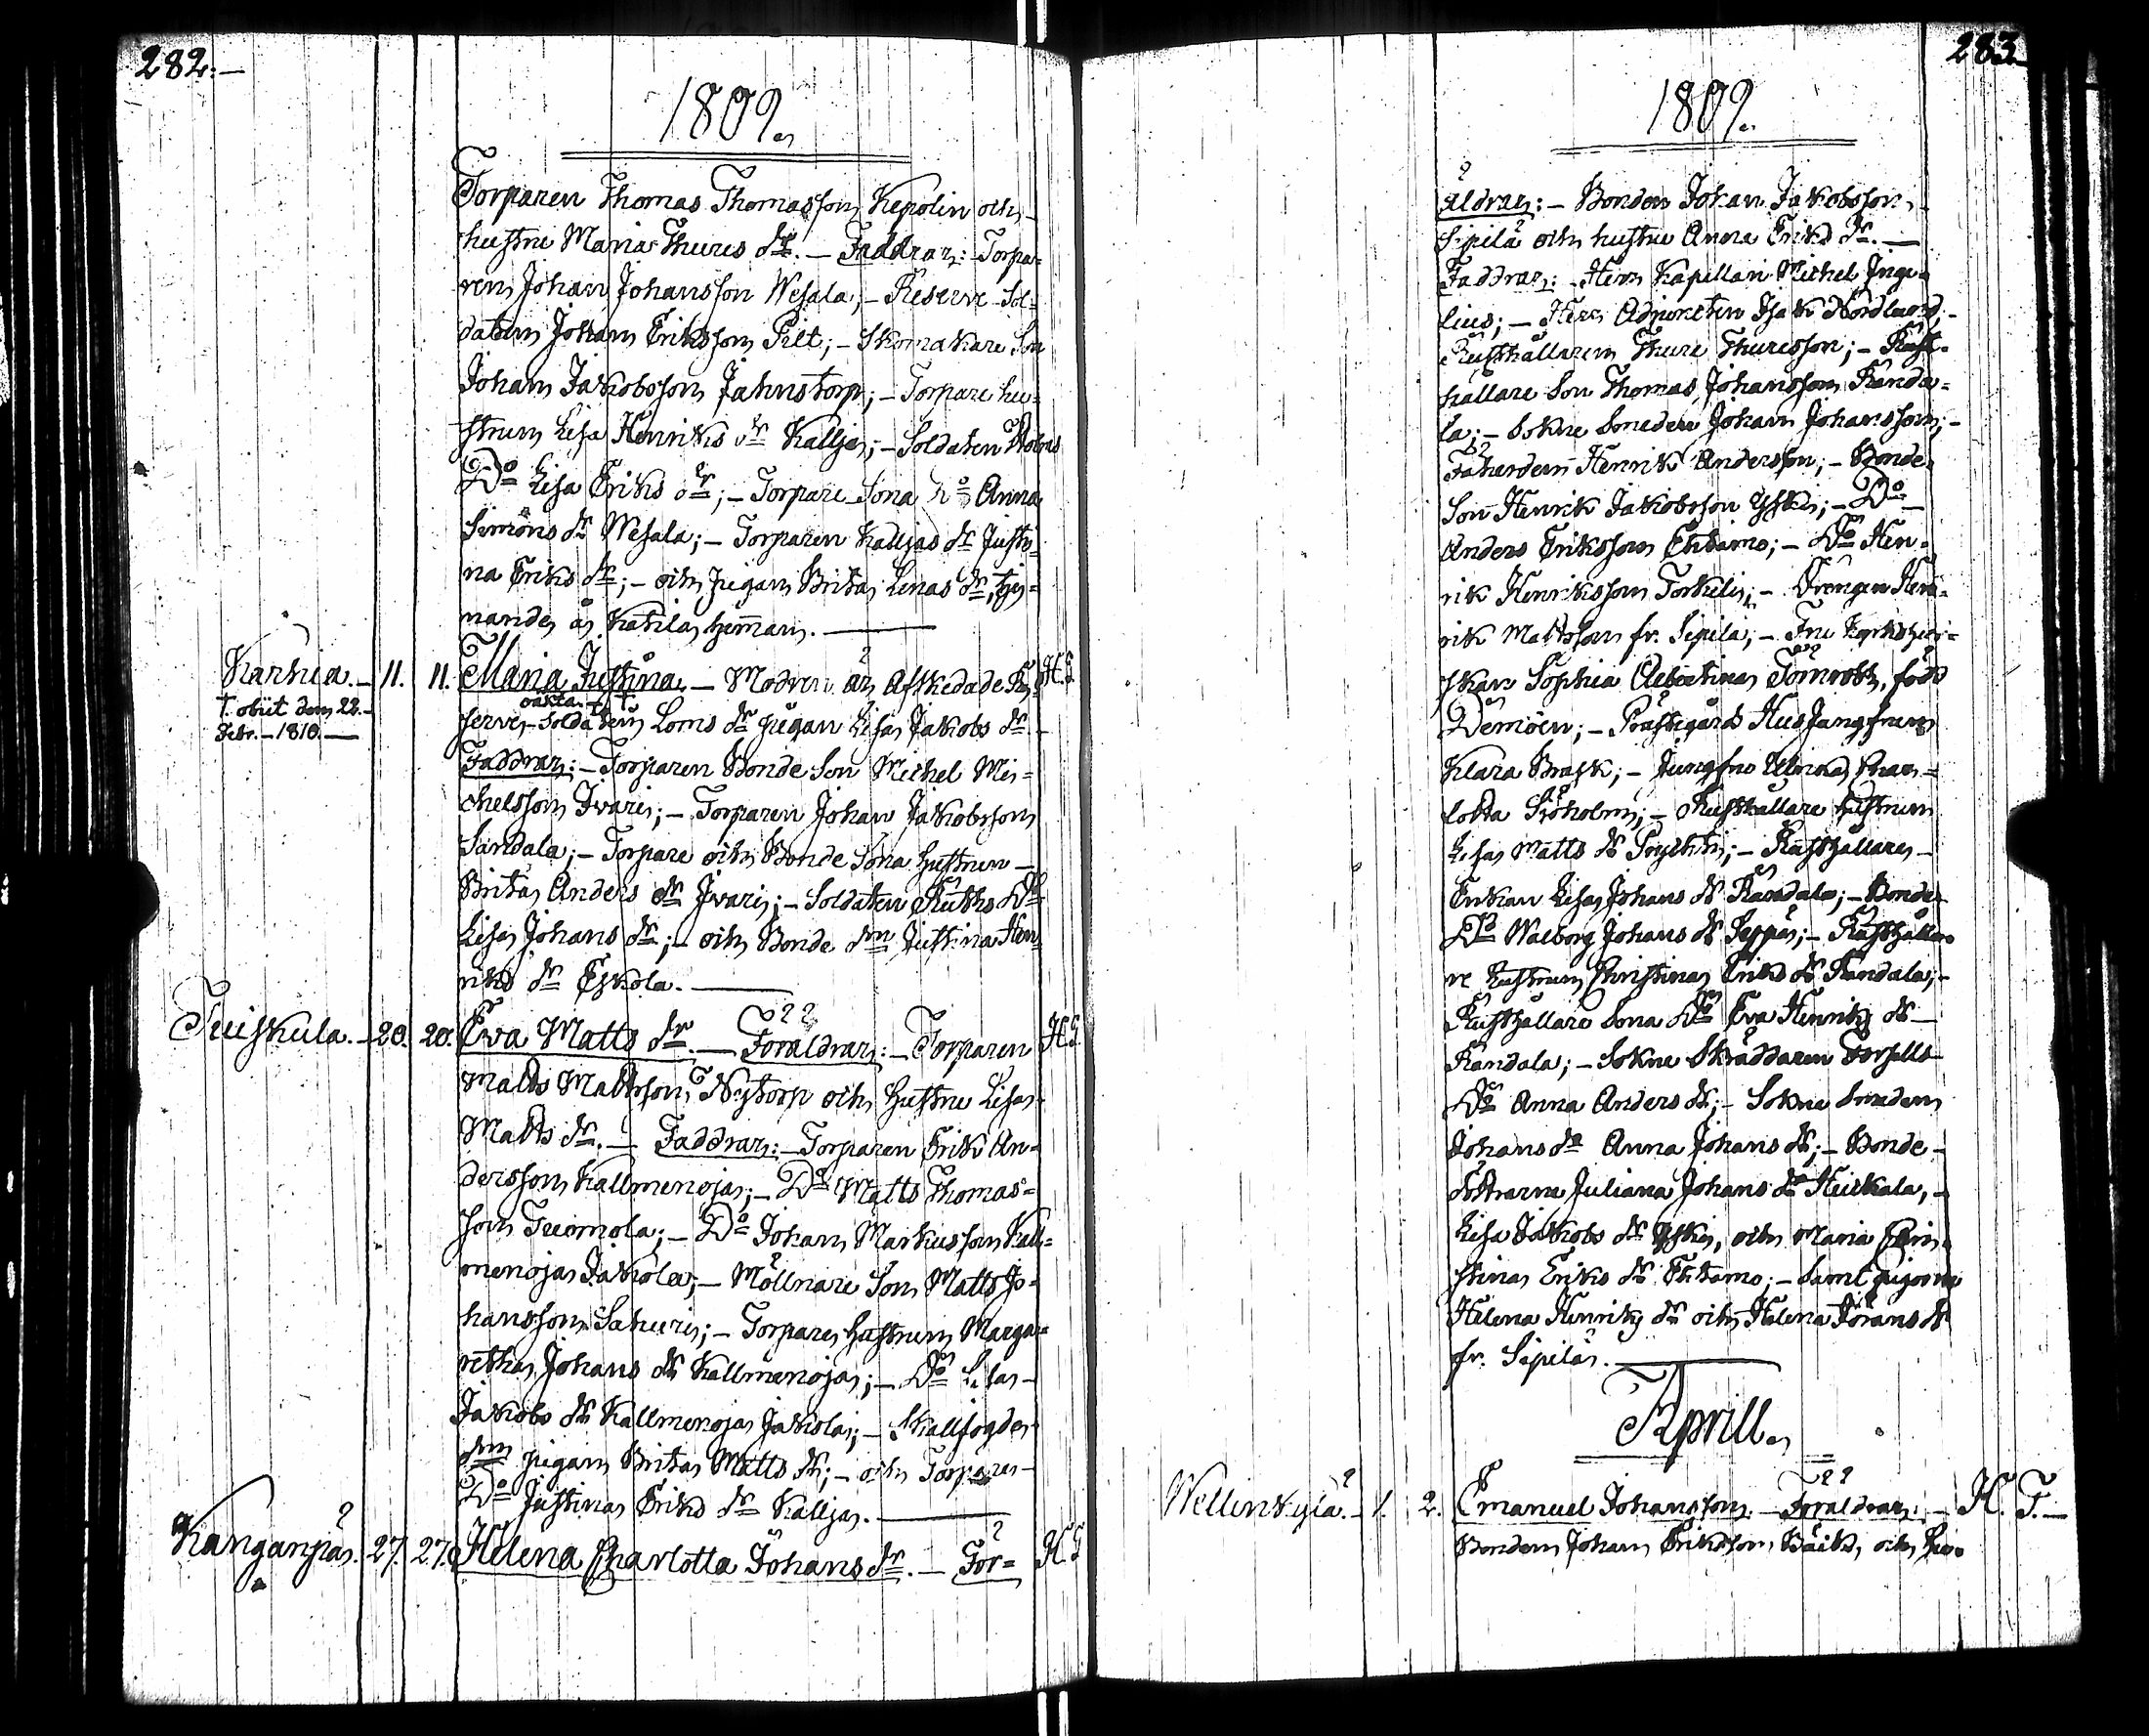 282.
1809.
Torparen Thomas Thomasson Kepolin och
hustru Maria Thures dr. — Faddrar: Torpa-
ren Johan Johansson Wesala; — Reserve Sol-
daten Johan Eriksson Pilt; — Skomakare Son
Johan Jakobsson Jahnstorp; — Torpare hu-
strun Lisa Henriks dr Kallja; — Soldaten
Do Lisa Eriks dr; — Torpare Sona Do Anna
Simons dr Wesala; — Torparen Kalljas dr Justi-
na Eriks dr; — och pigan Brita Lenas dr, tje-
nande å Katila hemman. —
Karhia. — 11. 11. Maria Justina. — Modren är Afskedade Re- H. T.
† obiit den 22. serve-Soldaten Loms oäkta dr pigan Lisa Jakobs dr. —
Febr. — 1810. —
Faddrar: — Torparen Bonde Son Michel Mi-
chelsson Ivari; — Torparen Johan Jakobsson
Sandala; — Torpare och Bonde Sona hustrun —
Brita Anders dr Ivari; — Soldaten Ruths Do
Lisa Johans dr; — och Bonde drn Justina Hen-
riks dr Eskola. —
Tuiskula. — 20. 20. Eva Matts dr. — Föräldrar: — Torparen H. T.
Matts Mattsson Nytorp och hustru Lisa
Matts dr. — Faddrar: — Torparen Erik An-
dersson Kallmenoja; — Do Matts Thomas-
son Tuomola; — Do Johan Markusson Kall-
menoja Jakola; — Möllnare Son Matts Jo-
hansson Sahuri; — Torpare hustrun Marga-
retha Johans dr Kallmenoja; — Do Lisa —
Jakobs dr Kallmenoja Jakola; — Skallfogde
drn pigan Brita Matts dr; — och Torpare —
Do Justina Eriks dr Kallja. —
Kanganpää. 27. 27. Helena Charlotta Johans dr. — För- H. T.
283.
1809.
äldrar: — Bonden Johan Jakobsson
Sipilä och hustru Anna Eriks dr. —
Faddrar: — Herr Kapellan Michel Inge-
lius; — Herr Adjuncten Isak Nordlund; —
Rusthållaren Thure Thuresson; — Rust-
hållare Son Thomas Johansson Randa-
la; — Sokne Smeden Johan Johansson; —
Fäherden Henrik Andersson; — Bonde
Son Henrik Jakobsson Yski; — Do —
Anders Eriksson Ehtamo; — Do Hen-
rik Henriksson Torkeli; — Drengen Hen-
rik Mattsson fr. Sipilä; — Fru
Sophia Albertina, född
Demoën; — Prästgårds HusJungfrun
Klara Brask; — Jungfru Ulrika Char-
lotta Sjöholm; — Rusthållare hustrun
Lisa Matts dr; — Rusthållare —
Enkan Lisa Johans dr Randala; — Bonde
Do Walborg Johans dr Seppä; — Rusthålla-
re hustrun Christina Eriks dr Randala; —
Rusthållare Sona Do Eva Henriks dr —
Randala; — Sokne Skräddaren Forsells
Do Anna Anders dr; — Sokne Smeden
Johans dr Anna Johans dr; — Bonde —
döttrarne Juliana Johans dr Heiskala, —
Lisa Jakobs dr Yski, och Maria Chri-
stina Eriks dr Ehtamo; — samt pigorna
Helena Henriks dr och Helena Jörans dr
fr. Sipilä. —
Aprill.
Wellinkylä. — 1. 2. Emanuel Johansson. — Föräldrar: — H. T. —
Bonden Johan Eriksson Bäck, och hu-